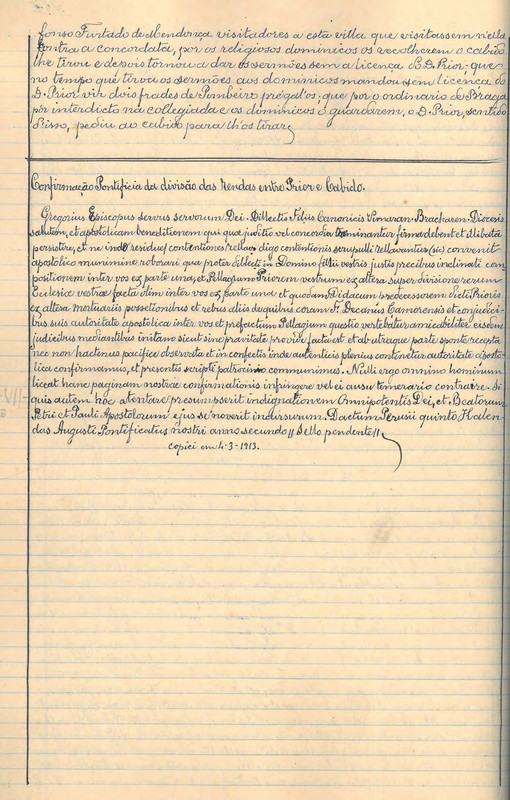 fonso Furtado de Mendonça visitadores a esta villa que visitassem n'ella
contra a concordata, por os religiosos dominicos os recolherem o cabido
lhe tirou e depois tornou a dar os sermões sem a licença do D. Prior: que
no tempo que tirou os sermões aos dominicos mandou sem licença do
D. Prior vir dois frades de Pombeiro prégal'os; que por o ordinario de Braga
pôr interdicto na collegiada e os dominicos o guardarem, o D. Prior, sentido
d'isso, pediu ao cabido para lh'os tirar,
Confirmação Pontificia da divisão das Rendas entre Prior e Cabido.
Gregorius Episcopus servus servorum Dei. Dillectis Filiis Canonicis Vimaran. Bracharen. Diocesis
salutem, et apostolicam beneditionem qui que juditio vel concordia terminantur firma debent et illibata
persistere, et ne in residui contentiones rellaos digo contentionis scrupulli rellavantur (sic) convenit
apostolico munimine roborari qua proter dillecti in Domino fillii vestris justis precibus inclinati com
positionem inter vos ex parte una, et Pellagium Priorem vestrum ex altera super divisione rerum
Eclesiæ vestræ facta olim inter vos ex parte una et quodam Didacum predecessorem dicti Prioris
ex altera Mortuariis possetionibus et rebus aliis de quibus coram F. Decanis Camorensis et conjudici-
bus suis autoritate apostolica inter vos et prefactum Pellagium questio vertebatur amicabiliter eisdem
judicibus mediantibus initam sicut sine pravitate provide facta est et ab utraque parte sponte recepta
nec non hactenus pacifice observata et in confectis inde autenticis plenius continetur autoritate aposto-
lica confirmamus, et presentis scripti patrocinio communimus. Nulli ergo omnino hominum
liceat hanc paginam nostræ confirmationis infringere vel ei ausu temerario contraire. Si
quis autem hoc atentare presumpserit indignationem Omnipotentis Dei, et Beatorum
Petri et Pauli Apostolorum ejus se noverit incursurum. Dactum Perusii quinto Kalen-
das Augusti Pontificatus nostri anno secundo // Sello pendente //
copiei em 4-3-1913.